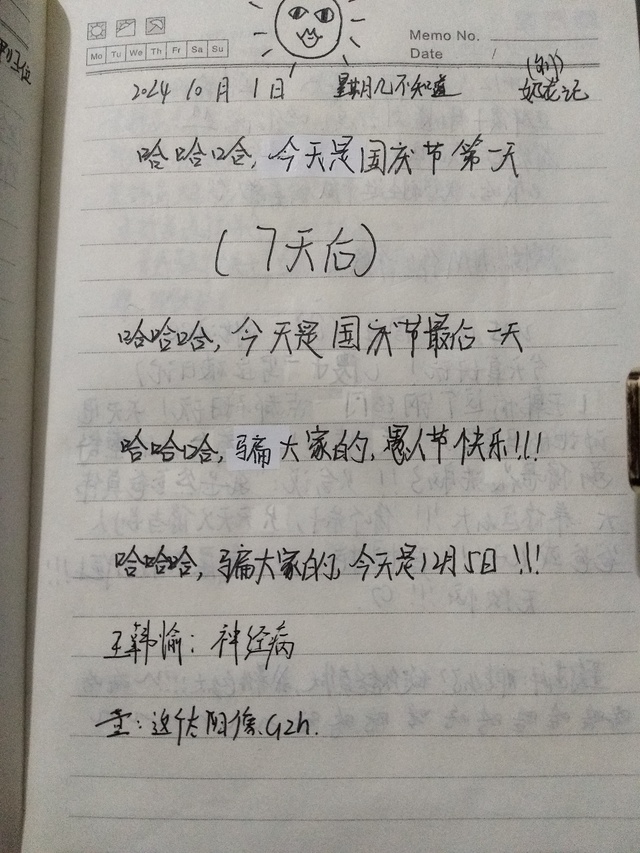 Memo No.
Mo Tu We Th Fr Sa Su
Date /
2024 10月1日 星期几不知道
哈哈哈,今天是国庆节第一天
(7天后)
哈哈哈,今天是国庆节最后一天
哈哈哈,骗大家的,愚人节快乐!!!
哈哈哈,骗大家的,今天是12月5日!!!
王韩愉:神经病
:这个太阳像Gzh.